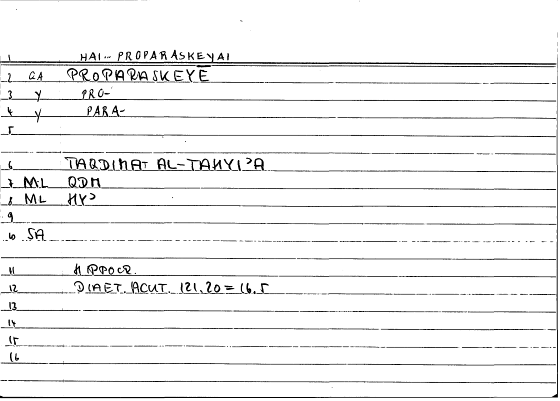 1 HAI-PROPARASKEYAI
2 GA PROPARASKEYĒ
3 Y PRO-
4 Y PARA-
5
6 TAQDIMAT AL-TAHYI'A
7 ML QDM
8 ML HY'
9
10 SA
11 HIPPOCR.
12 DIAET. ACUT. 121.20 = 16.5
13
14
15
16